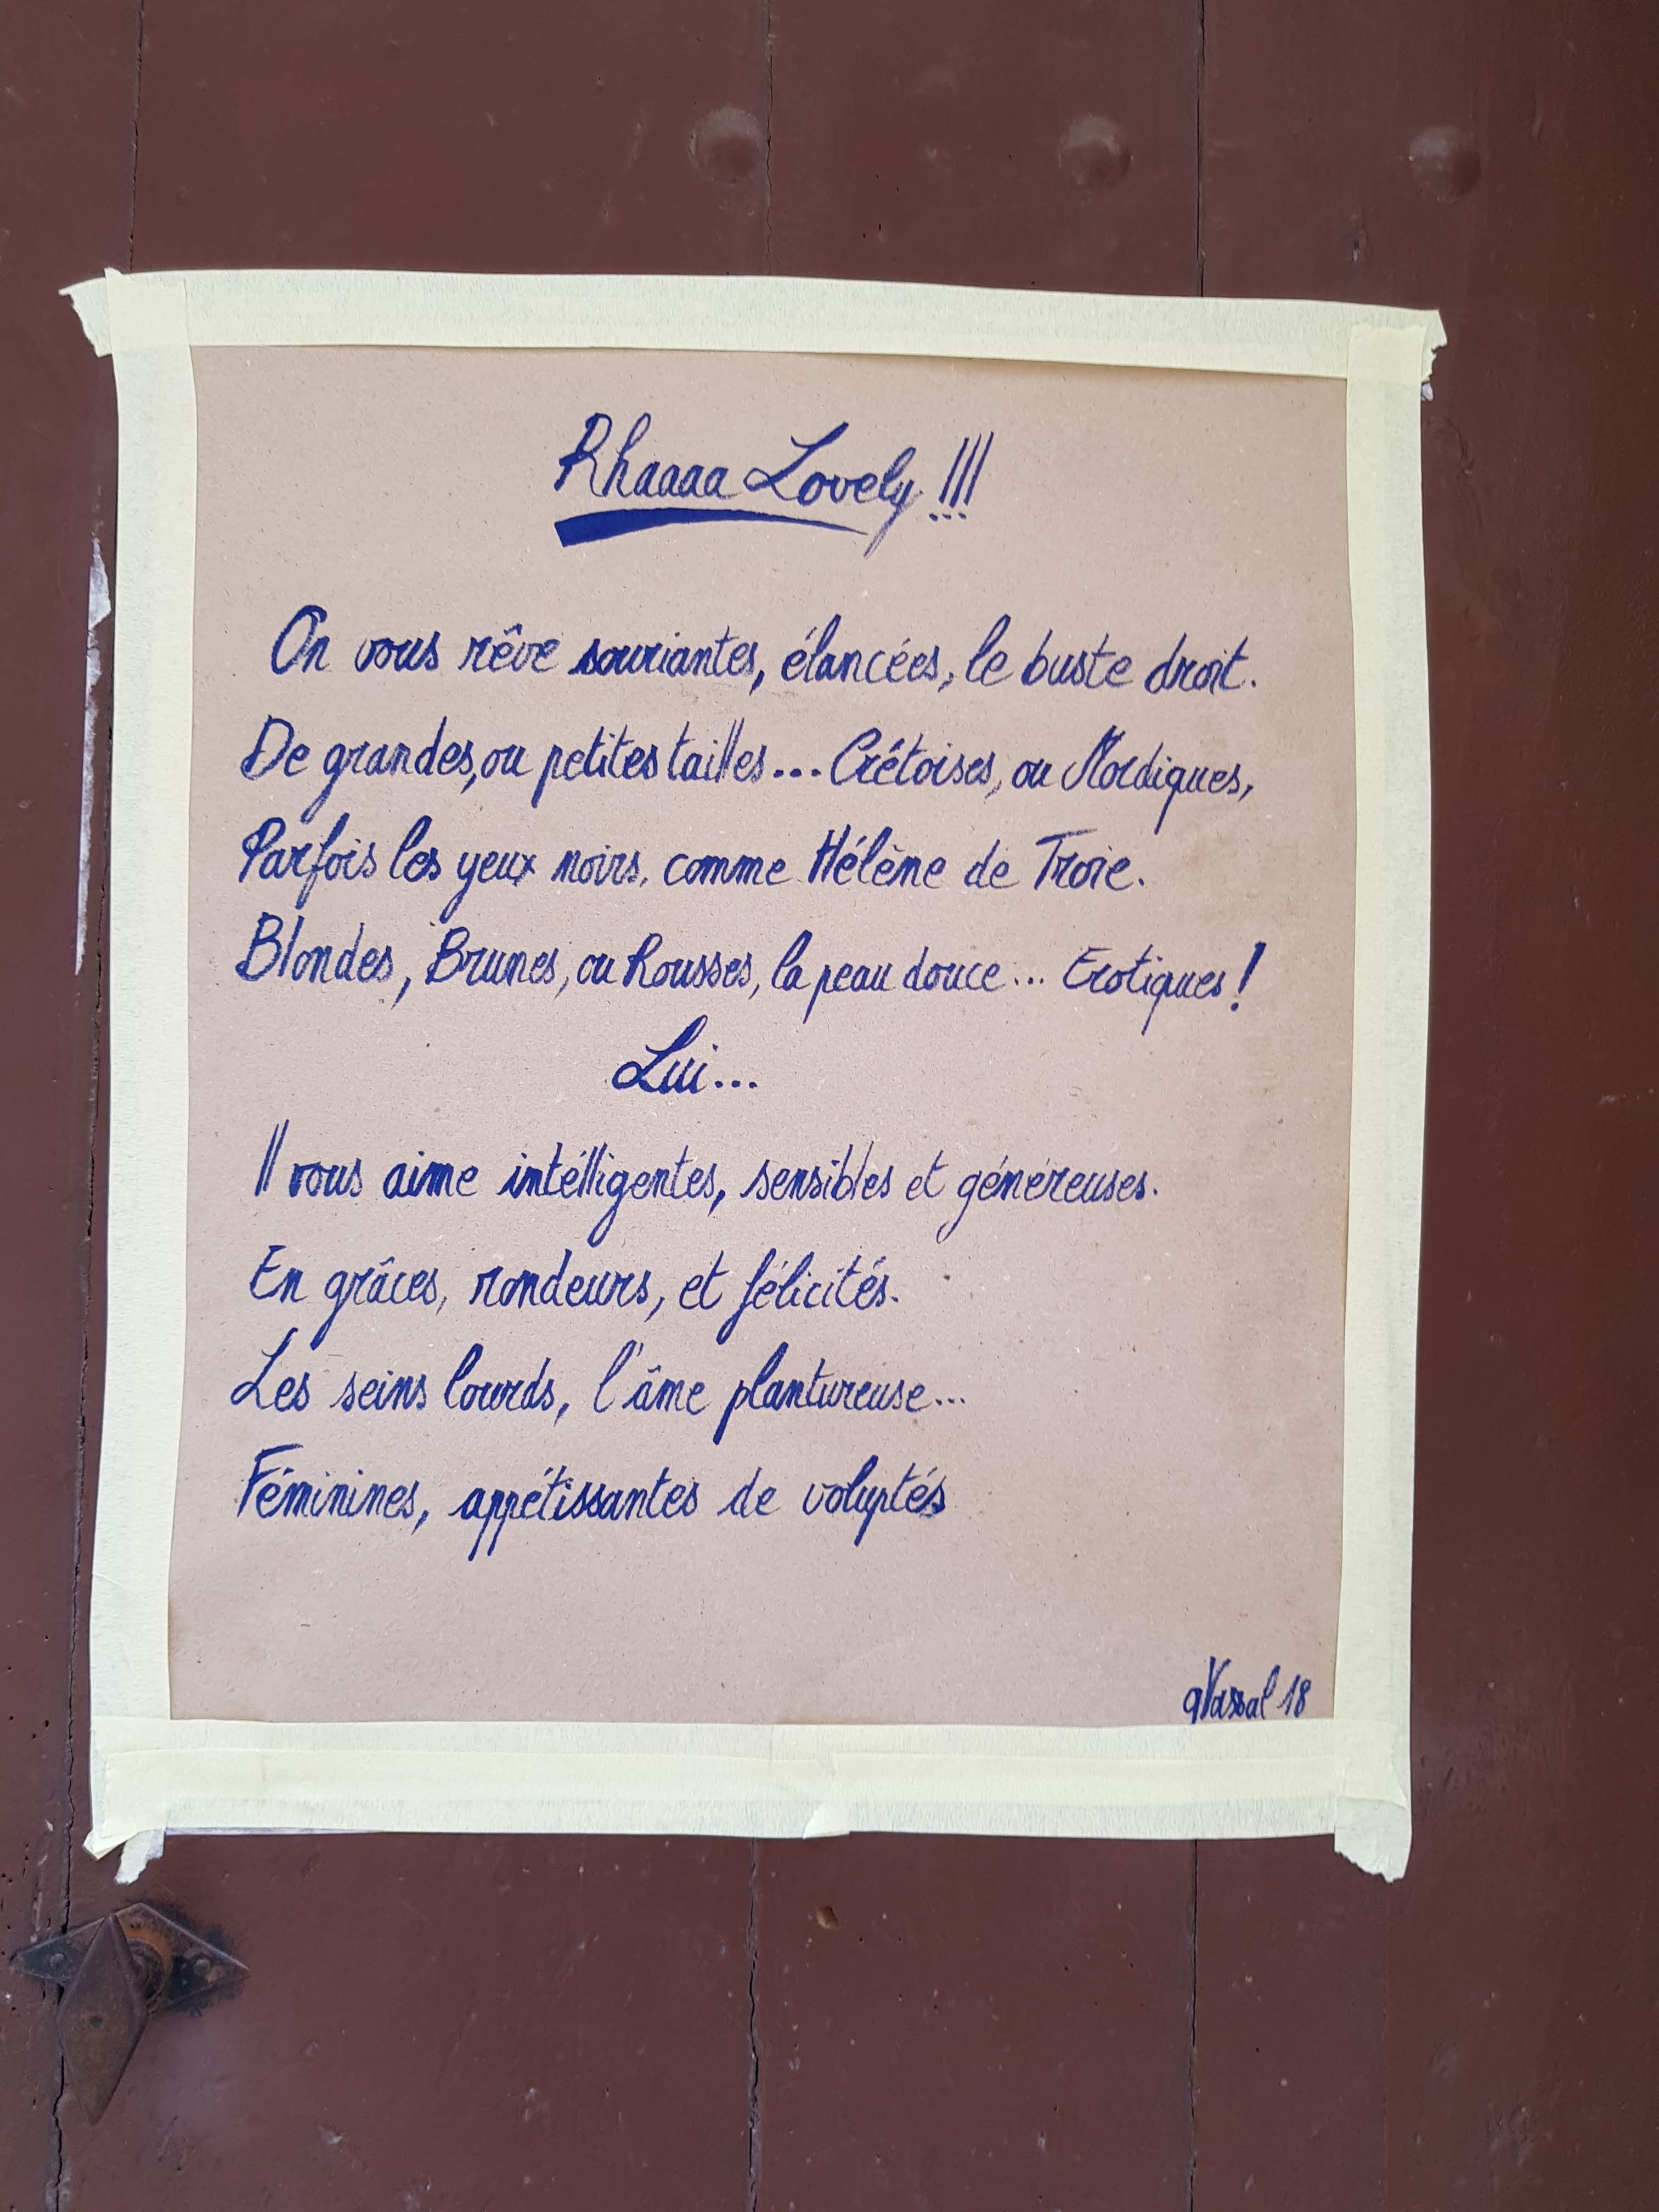 Rhaaaa Lovely !!!
On vous rêve souriantes, élancées, le buste droit.
De grandes, ou petites tailles... Crétoises, ou Nordiques,
Parfois les yeux noirs, comme Hélène de Troie.
Blondes, Brunes, ou Rousses, la peau douce... Erotiques !
Lui...
Il vous aime intélligentes, sensibles et généreuses.
En grâces, rondeurs, et félicités.
Les seins lourds, l'âme plantureuse...
Féminines, appétissantes de voluptés
aVassal 18